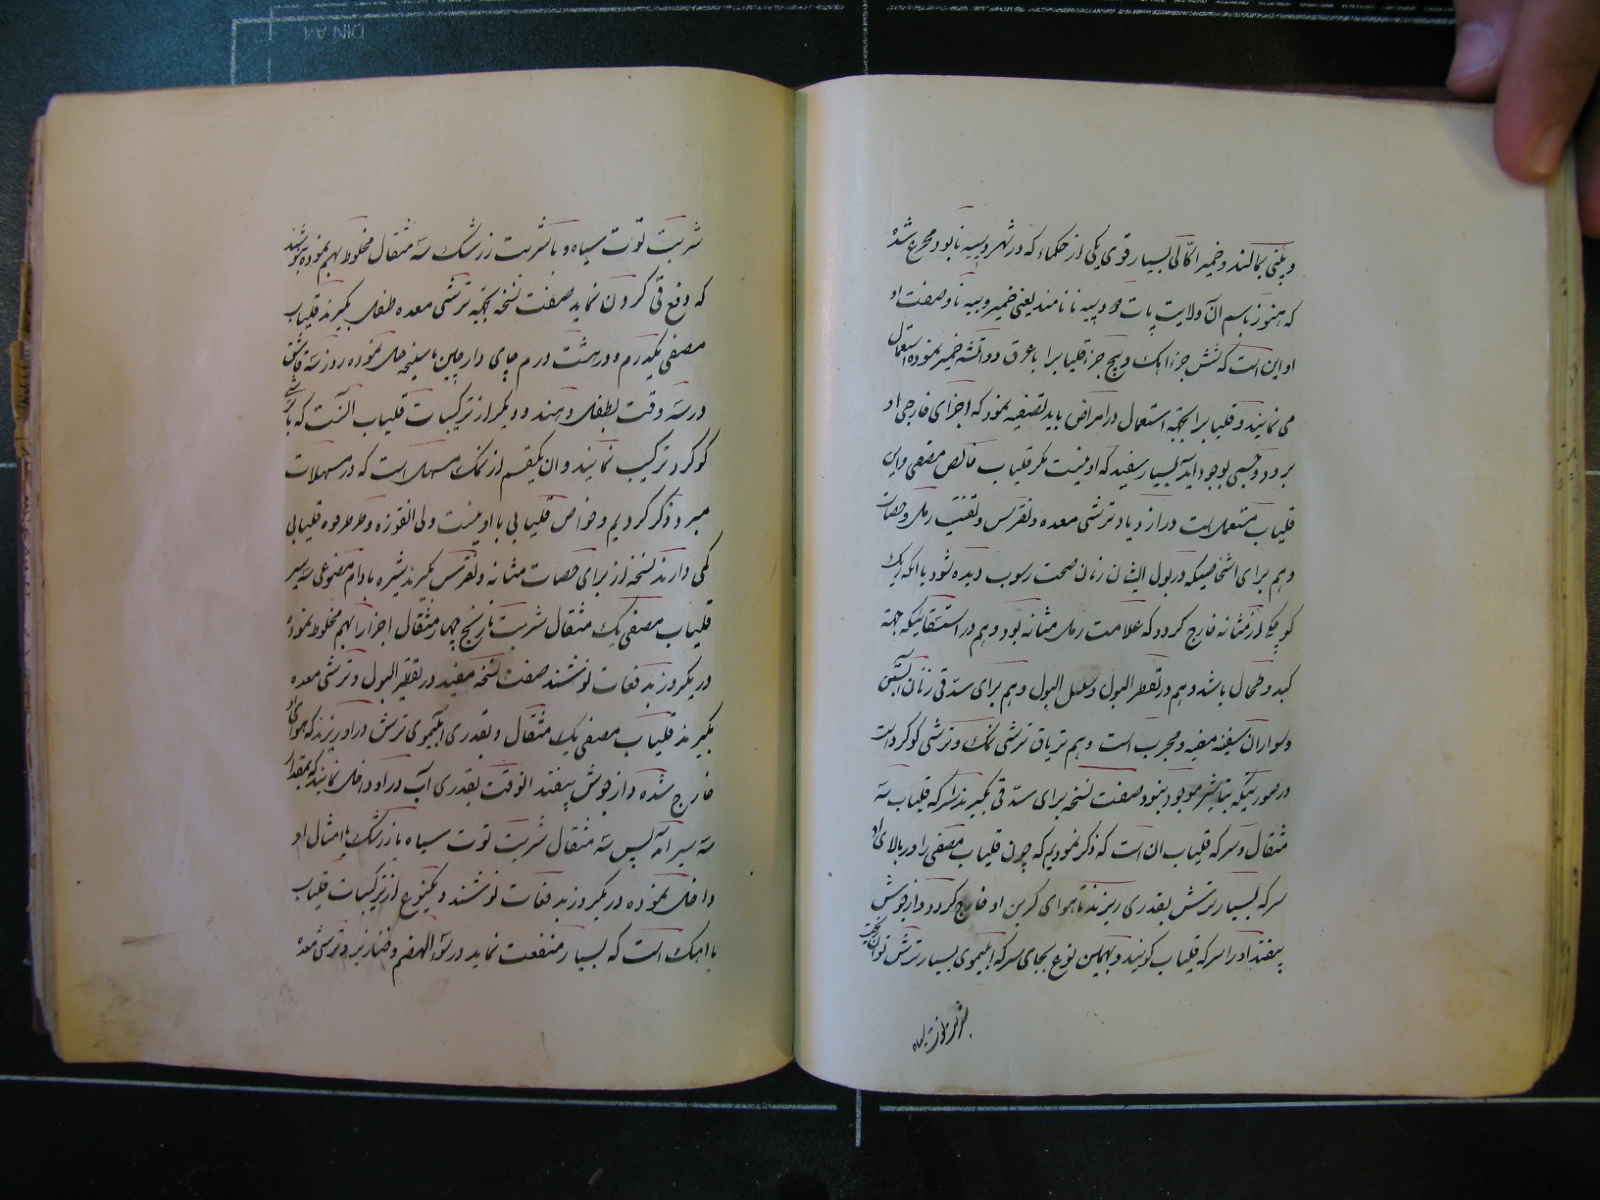 و پلنی بمالند و خمیر اکّالی بسیار قوی یکی از حکماء که در شهر ویینه نابود مخرع شده
که هنوز باسم آن ولایت پات د ویینه نا نامند یعنی خمیر ویینه نا وصفت او
او این است که شش جزء اهک و پنج جزء قلیابرا با عرق دو اتشه خمیر نموده استعمال
می نمایند و قلیابرا بجهة استعمال در امراض باید تصفیه نمود که اجزای خارجی او
برود و جسمی بوجود اید بسیار سفید که او نیست مکر قلیاب خالص مصفی و این
قلیاب مستعمل است در ازدیاد ترشی معده و نقرس و تفتیت رمل و حصات
و هم برای اشخاصیکه در بول ایشان زمان صحت رسوب دیده شود یا انکه ریک
کوچک از مثانه خارج کردد که علامت رمل مثانه بود و هم در استسقائیکه جهة
کبد و طحال باشد و هم در تقطر البول و سلس البول و هم برای سدّ قی زنان آبستن
و سواران سفینه مفید و مجرب است و هم تریاق ترشی نمک و ترشی کوکرد است
در صورتیکه تباشیر موجود نبود صفت نسخه برای سدّ قی بکیرند سرکه قلیاب سه
مثقال و سرکه قلیاب ان است که ذکر نمودیم که چون قلیاب مصفی را در بالای او
سرکه بسیار ترش بقدری ریزند تا هوای کربن او خارج کردد و از جوش
بیفتد او را سرکه قلیاب کویند و بهمین نوع بجای سرکه ابلیموی بسیار ترش توان ریخت
شربت توت سیاه
شربت توت سیاه و یا شربت زرشک سه مثقال مخلوط بهم نموده بنوشند
که دفع قی کردن نماید صفت نسخه بجهة ترشی معده طفل بکیرند قلیاب
مصفی یکدرم و در هشت درم چای دارچین یا سنیخه حل نموده روز سه قاشق
در سه وقت بطفل دهند و دیکر از ترکیبات قلیاب آنست که با ترشی
کوکرد ترکیب نمایند و ان یکقسم از نمک مسهل است که در مسهلات
مبرد ذکر کردیم و خواص قلیابی با او نیست ولی انقوزه و طرطره قلیابی
کمی دارند نسخه از برای حصات مثانه و نقرس بکیرند شیره بادام مصنوعی سه سیر
قلیاب مصفی یک مثقال شربت نارنج چهار مثقال اجزا را بهم مخلوط نموده
در یکروز بدفعات نوشند صفت نسخه مفید در تقطیر البول و ترشی معده
بکیرند قلیاب مصفی یک مثقال و بقدری ابلیموی ترش در او ریزند که هوای او
خارج شده و از جوش بیفتد انوقت بقدری آب در او داخل نمایند که بمقدار
سه سیر آید پس سه مثقال شربت توت سیاه یا زرشک یا امثال او
داخل نموده در یکروز بدفعات نوشند و یکنوع از ترکیبات قلیاب
با اهک است که بسیار منفعت نماید در سوء الهضم و خنازیر و ترشی معده